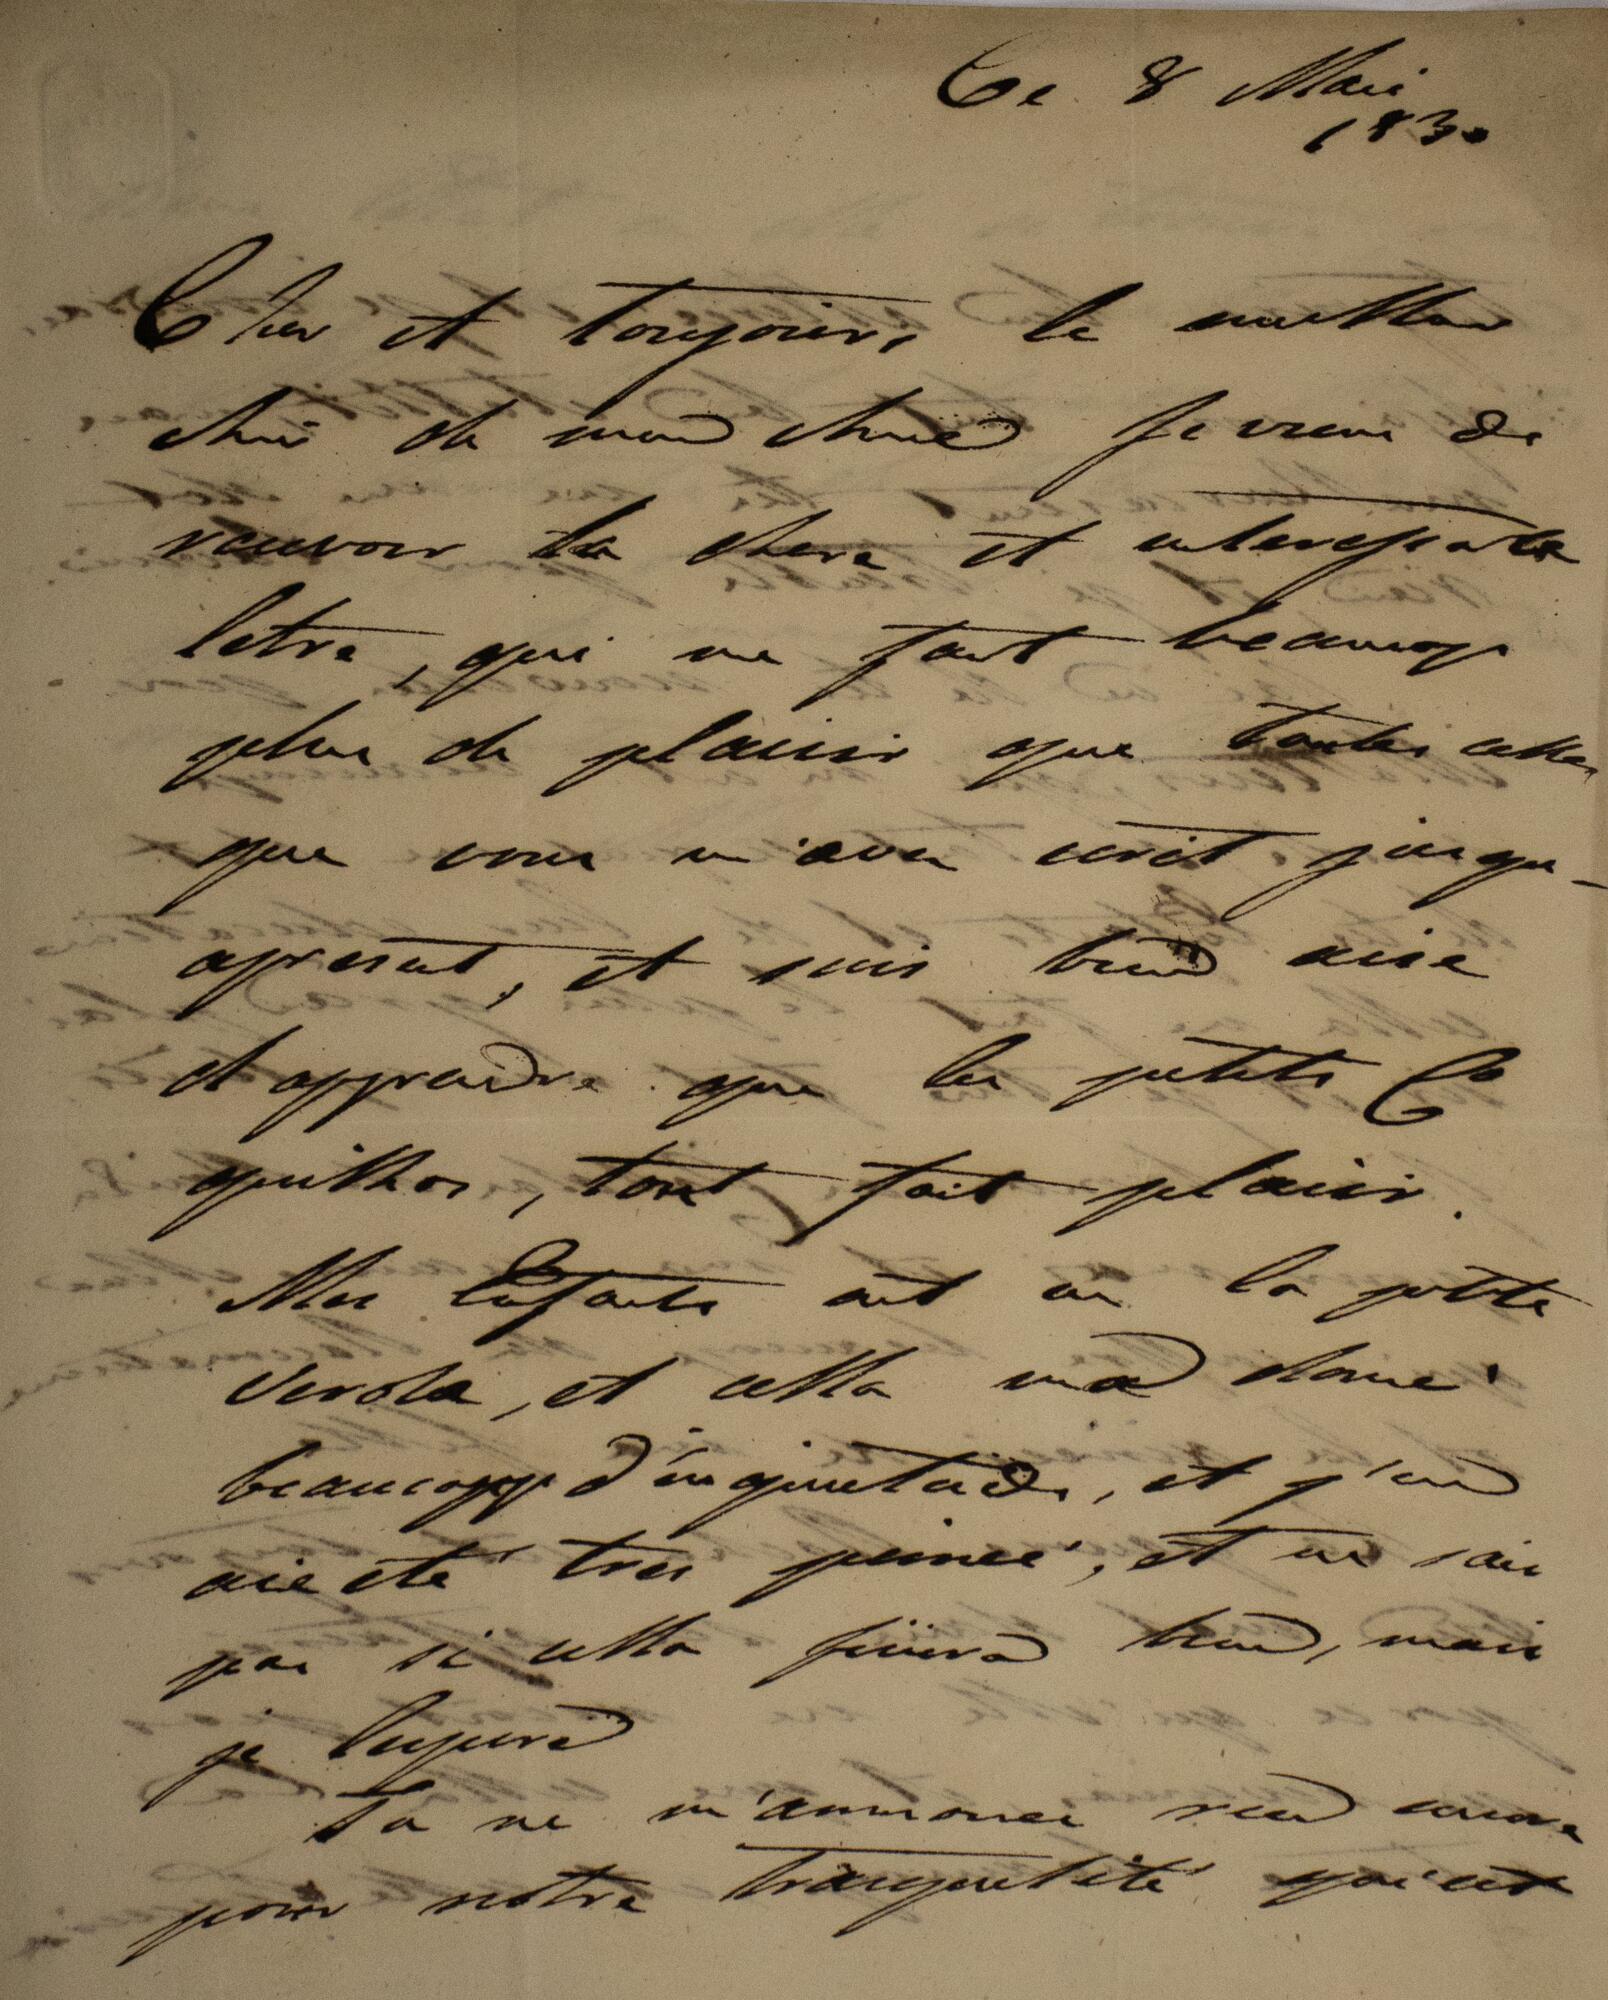 Ce 8 Mai
1830
Cher et toujours le meilleur
Amis de mon Amie Je viens de
recevoir ta chere et interessante
letre, qui me fait beaucop
plus de plaisir que toutes celles
que vous m'aves ecrit jusqu-
apresent, et suis bien aise
d'apprendre que les petits Co
quilhos, tont fait plaisir.
Mes Enfants ont eu la petite
Verole, et cella m'a donné
beaucoupp d'inquietude, et j'en
aie été tres peineé, et ne sais
pas si cella finira bien, mais
je l'espere
Tu ne m'annonces rien encore
pour notre tranquilité qui est